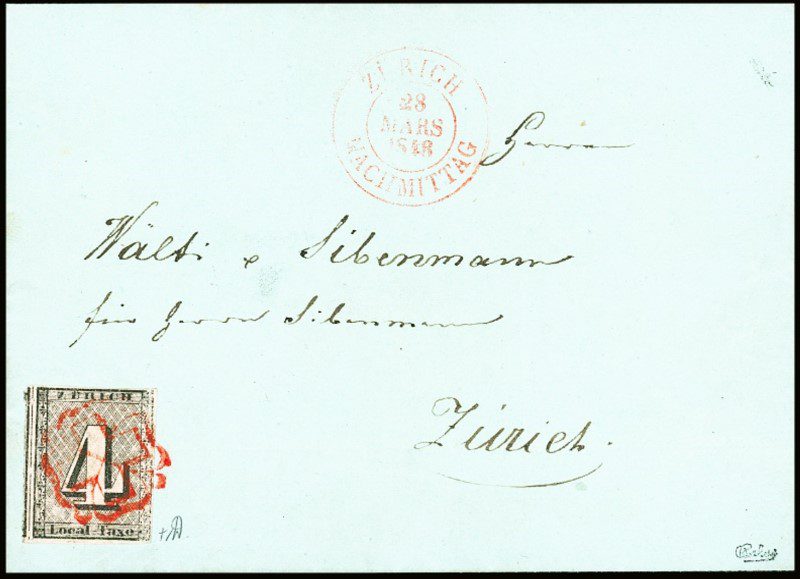 ZÜRICH
28
MARS
1848
NACHMITTAG
Herren
Wälti & Sibenmann
für Herrn Sibenmann
Zürich.
ZÜRICH
4
Local-Taxe